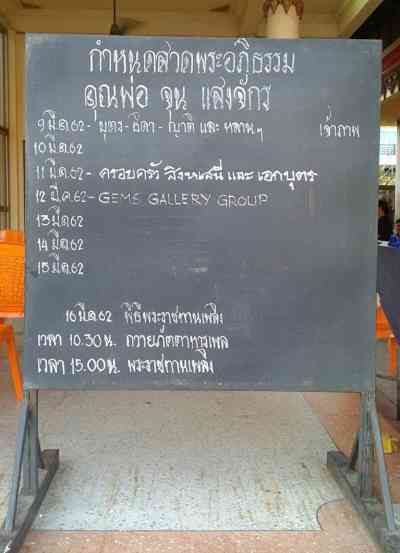 กำหนดสวดพระอภิธรรม
คุณพ่อ จุน แสงจักร
9 มี.ค.62 - บุตร-ธิดา - ญาติ และ หลานๆ เจ้าภาพ
10 มี.ค.62
11 มี.ค.62 - ครอบครัว สิงหเสนี และ เอกบุตร
12 มี.ค.62 - GEMS GALLERY GROUP
13 มี.ค.62
14 มี.ค.62
15 มี.ค.62
16 มี.ค.62 พิธีพระราชทานเพลิง
เวลา 10.30น. ถวายภัตตาหารเพล
เวลา 15.00น. พระราชทานเพลิง